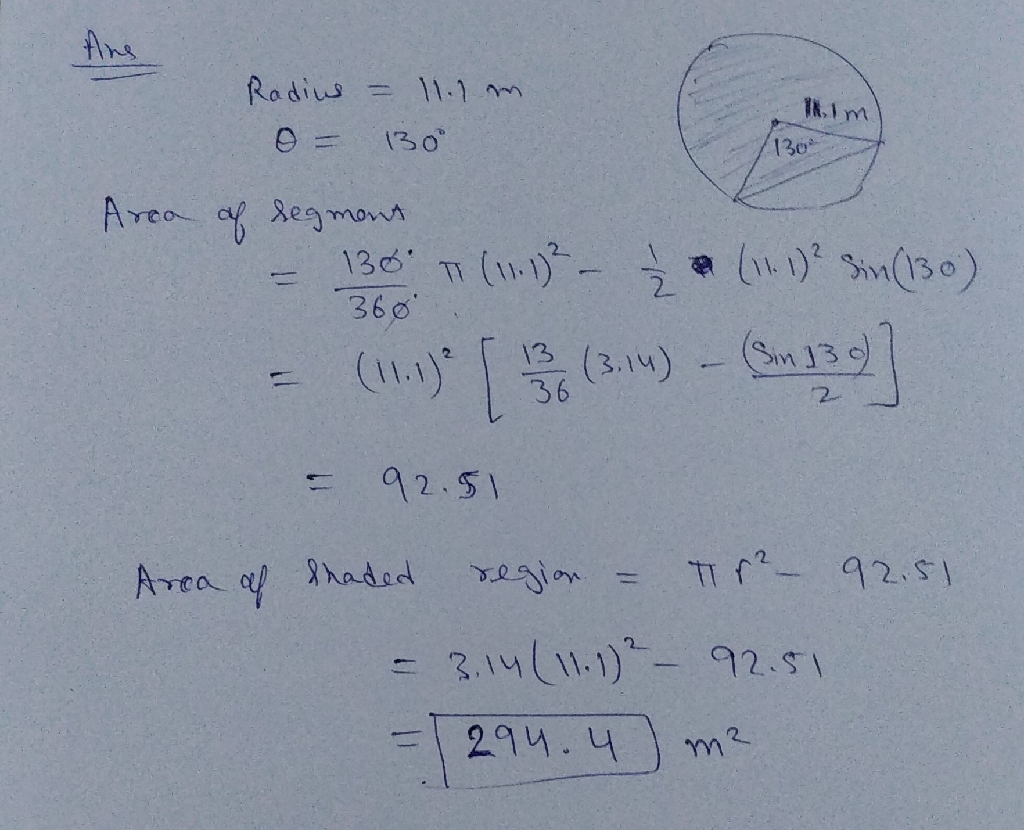 Ans
Radius = 11.1 m
θ = 130°
11.1m
130°
Area of segment
= 130°/360° π (11.1)² - 1/2 (11.1)² Sin(130)
= (11.1)² [ 13/36 (3.14) - (Sin 130)/2 ]
= 92.51
Area of Shaded region = πr² - 92.51
= 3.14(11.1)² - 92.51
= 294.4 m²